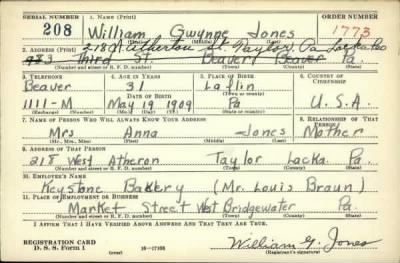 SERIAL NUMBER 1. NAME (Print) ORDER NUMBER
208 William Gwynne Jones 1773
(First) (Middle) (Last)
2. ADDRESS (Print) 218 W. Atherton St. Taylor, Pa Lacka. Pa
Third St. Beaver Beaver Pa.
(Number and street or R. F. D. number) (Town) (County) (State)
3. TELEPHONE 4. AGE IN YEARS 5. PLACE OF BIRTH 6. COUNTRY OF CITIZENSHIP
Beaver 31 Laflin
DATE OF BIRTH (Town or county)
1111-M May 19 1909 Pa U.S.A.
(Exchange) (Number) (Mo.) (Day) (Yr.) (State or country)
7. NAME OF PERSON WHO WILL ALWAYS KNOW YOUR ADDRESS 8. RELATIONSHIP OF THAT PERSON
Mrs Anna Jones Mother
(Mr., Mrs., Miss) (First) (Middle) (Last)
9. ADDRESS OF THAT PERSON
218 West Atheron Taylor Lacka. Pa.
(Number and street or R. F. D. number) (Town) (County) (State)
10. EMPLOYER'S NAME
Keystone Bakery (Mr. Louis Braun)
11. PLACE OF EMPLOYMENT OR BUSINESS
Market Street West Bridgewater Pa.
(Number and street or R. F. D. number) (Town) (County) (State)
I AFFIRM THAT I HAVE VERIFIED ABOVE ANSWERS AND THAT THEY ARE TRUE.
REGISTRATION CARD
D. S. S. Form 1 (over) 16—17105 William G. Jones
(Registrant's signature)